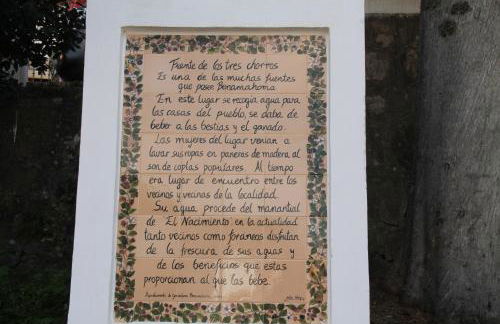 Fuente de los tres chorros
Es una de las muchas fuentes
que posee Benamahoma
En este lugar se recogia agua para
las casas del pueblo, se daba de
beber a las bestias y el ganado.
Las mujeres del lugar venian a
lavar sus ropas en paneras de madera al
son de coplas populares. Al tiempo
era lugar de encuentro entre los
vecinos y vecinas de la localidad.
Su agua procede del manantial
de "El Nacimiento" en la actualidad
tanto vecinos como foraneos disfrutan
de la frescura de sus aguas y
de los beneficios que estas
proporcionan al que las bebe.
Ayuntamiento de Grazalema Benamahoma